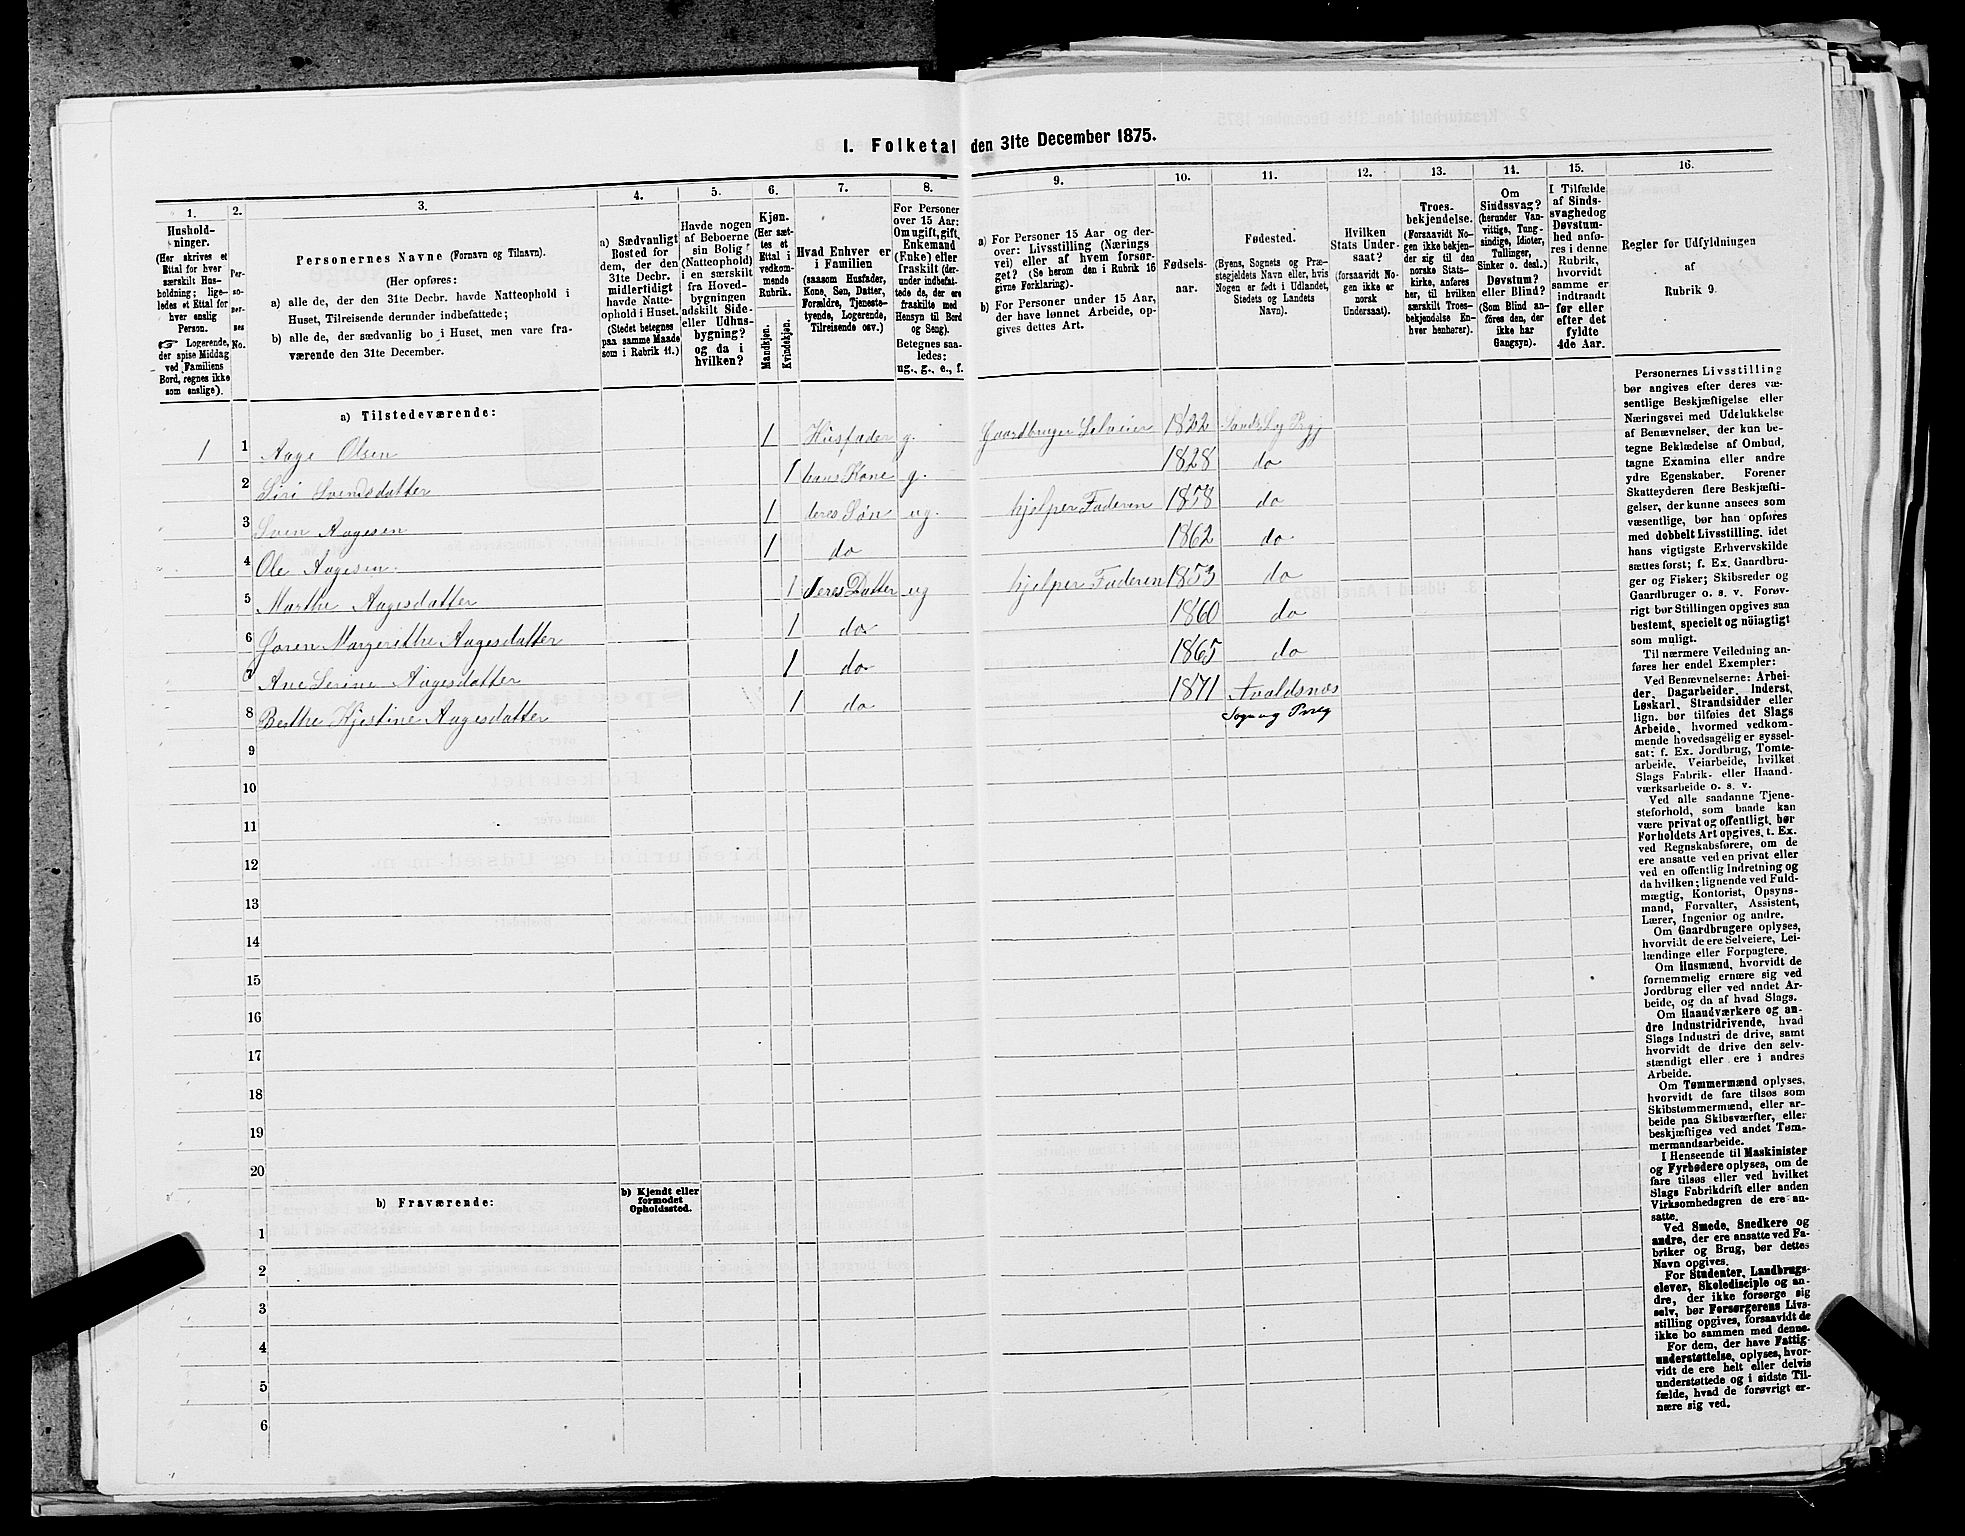 I. Folketal den 31te December 1875.
1.
Hushold-
ninger.
(Her skrives et
Ettal for hver
særskilt Hus-
holdning; lige-
ledes et Ettal for
hver enslig
Person.
☞ Logerende,
der spise Middag
ved Familiens
Bord, regnes ikke
som enslige).
2.
Per-
so-
ner-
nes
No.
3.
Personernes Navne (Fornavn og Tilnavn).
(Her opføres:
a) alle de, der den 31te Decbr. havde Natteophold i
Huset, Tilreisende derunder indbefattede;
b) alle de, der sædvanlig bo i Huset, men vare fra-
værende den 31te December.
4.
a) Sædvanligt
Bosted for
dem, der den
31te Decbr.
midlertidigt
havde Natte-
ophold i Huset.
(Stedet betegnes
paa samme Maade
som i Rubrik 11.)
5.
Havde nogen
af Beboerne
sin Bolig
(Natteophold)
i en særskilt
fra Hoved-
bygningen
adskilt Side-
eller Udhus-
bygning?
og da i
hvilken?
6.
Kjøn.
(Her sæt-
tes et
Ettal i
vedkom-
mende
Rubrik.
Mandkjøn.
Kvindekjøn.
7.
Hvad Enhver er
i Familien
(saasom Husfader,
Kone, Søn, Datter,
Forældre, Tjeneste-
tyende, Logerende,
Tilreisende osv.)
8.
For Personer
over 15 Aar:
Om ugift, gift,
Enkemand
(Enke) eller
fraskilt (der-
under indbefat-
tede de, der ere
fraskilte med
Hensyn til Bord
og Seng).
Betegnes saa-
ledes:
ug., g., e., f.
9.
a) For Personer 15 Aar og der-
over: Livsstilling (Nærings
vei) eller af hvem forsør-
get? (Se herom den i Rubrik 16
givne Forklaring).
b) For Personer under 15 Aar,
der have lønnet Arbeide, op-
gives dettes Art.
10.
Fødsels-
aar.
11.
Fødested.
(Byens, Sognets og Præ-
stegjeldets Navn eller, hvis
Nogen er født i Udlandet,
Stedets og Landets
Navn).
12.
Hvilken
Stats Under-
saat?
(forsaavidt No-
gen ikke er
norsk
Undersaat).
13.
Troes-
bekjendelse.
(Forsaavidt No-
gen ikke bekjen-
der sig til den
norske Stats-
kirke, anføres
her, til hvilken
særskilt Troes-
bekjendelse En-
hver henhører).
14.
Om
Sindssvag?
(herunder Van-
vittige, Tung-
sindige, Idioter,
Tullinger,
Sinker o. desl.)
Døvstum?
eller Blind?
(Som Blind an-
føres den, der
ikke har
Gangsyn).
15.
I Tilfælde
af Sinds-
svaghed og
Døvstum-
hed anfø-
res i denne
Rubrik,
hvorvidt
samme er
indtraadt
før eller
efter det
fyldte
4de Aar.
16.
Regler for Udfyldningen
af
Rubrik 9.
a) Tilstedeværende:
1 1 Aage Olsen 1 Husfader g. Gaardbruger Selveier 1822
2 Siri Svendsdatter 1 hans Kone g. 1828 do
3 Sven Aagesen 1 deres Søn ug. hjelper Faderen 1858 do
4 Ole Aagesen. 1 do 1862 do
5 Marthe Aagesdatter 1 deres Datter ug hjelper Faderen 1853 do
6 Gøren Margrethe Aagesdatter 1 do 1860 do
7 Ane Serine Aagesdatter 1 do 1865 do
8 Berthe Kjestine Aagesdatter 1 do 1871 Avaldsnes
Sogn og Præg
9
10
11
12
13
14
15
16
17
18
19
20
b) Fraværende:
b) Kjendt eller
formodet
Opholdssted.
1
2
3
4
5
6
Personernes Livsstilling
bør angives efter deres væ-
sentlige Beskjæftigelse eller
Næringsvei med Udelukkelse
af Benævnelser, der kun be-
tegne Beklædelse af Ombud,
tagne Examina eller andre
ydre Egenskaber. Forener
Skatteyderen flere Beskjæfti-
gelser, der kunne ansees som
væsentlige, bør han opføres
med dobbelt Livsstilling, idet
hans vigtigste Erhvervskilde
sættes først; f. Ex. Gaardbru-
ger og Fisker; Skibsreder og
Gaardbruger o. s. v. Forøv-
rigt bør Stillingen opgives saa
bestemt, specielt og nöiagtigt
som muligt.
Til nærmere Veiledning an-
føres her endel Exempler:
Ved Benævnelserne: Arbei-
der, Dagarbeider, Inderst,
Løskarl, Strandsidder eller
lign. bør tilføies det Slags
Arbeide, hvormed vedkom-
mende hovedsagelig er syssel-
sat: f. Ex. Jordbrug, Tomte-
arbeide, Veiarbeide, hvilket
Slags Fabrik- eller Haand-
værksarbeide o. s. v.
Ved alle saadanne Tjene-
steforhold, som baade kan
være privat og offentligt, bør
Forholdets Art opgives, t. Ex.
ved Regnskabsførere, om de
ere ansatte ved en privat eller
ved en offentlig Indretning og
da hvilken; lignende ved Fuld-
mægtig, Kontorist, Opsyns-
mand, Forvalter, Assistent,
Lærer, Ingeniør og andre.
Om Gaardbrugere oplyses,
hvorvidt de ere Selveiere, Lei-
lændinge eller Forpagtere.
Om Husmænd, hvorvidt de
fornemmelig ernære sig ved
Jordbrug eller ved andet Ar-
beide, og da af hvad Slags.
Om Haandværkere og an-
dre Industridrivende, hvad
Slags Industri de drive, samt
hvorvidt de drive den selv-
stændigt eller ere i andres
Arbeide.
Om Tømmermænd oplyses,
hvorvidt de fare tilsøs som
Skibstømmermænd, eller ar-
beide paa Skibsværfter, eller
beskjæftiges ved andet Tøm-
mermandsarbeide.
I Henseende til Maskinister
og Fyrbødere oplyses, om de
fare tilsøs eller ved hvilket
Slags Fabrikdrift eller anden
Virksomhedsgren de ere an-
satte.
Ved Smede, Snedkere og
andre, der ere ansatte ved Fa-
briker og Brug, bør dettes
Navn opgives.
For Studenter, Landbrugs-
elever, Skoledisciple og an-
dre, der ikke forsørge sig
selv, bør Forsørgerens Livs-
stilling opgives, forsaavidt de
ikke bo sammen med denne.
For dem, der have Fattig-
understøttelse, oplyses, hvor-
vidt de ere helt eller delvis
understøttede og i sidste Til-
fælde, hvad de forøvrigt er-
nære sig ved.